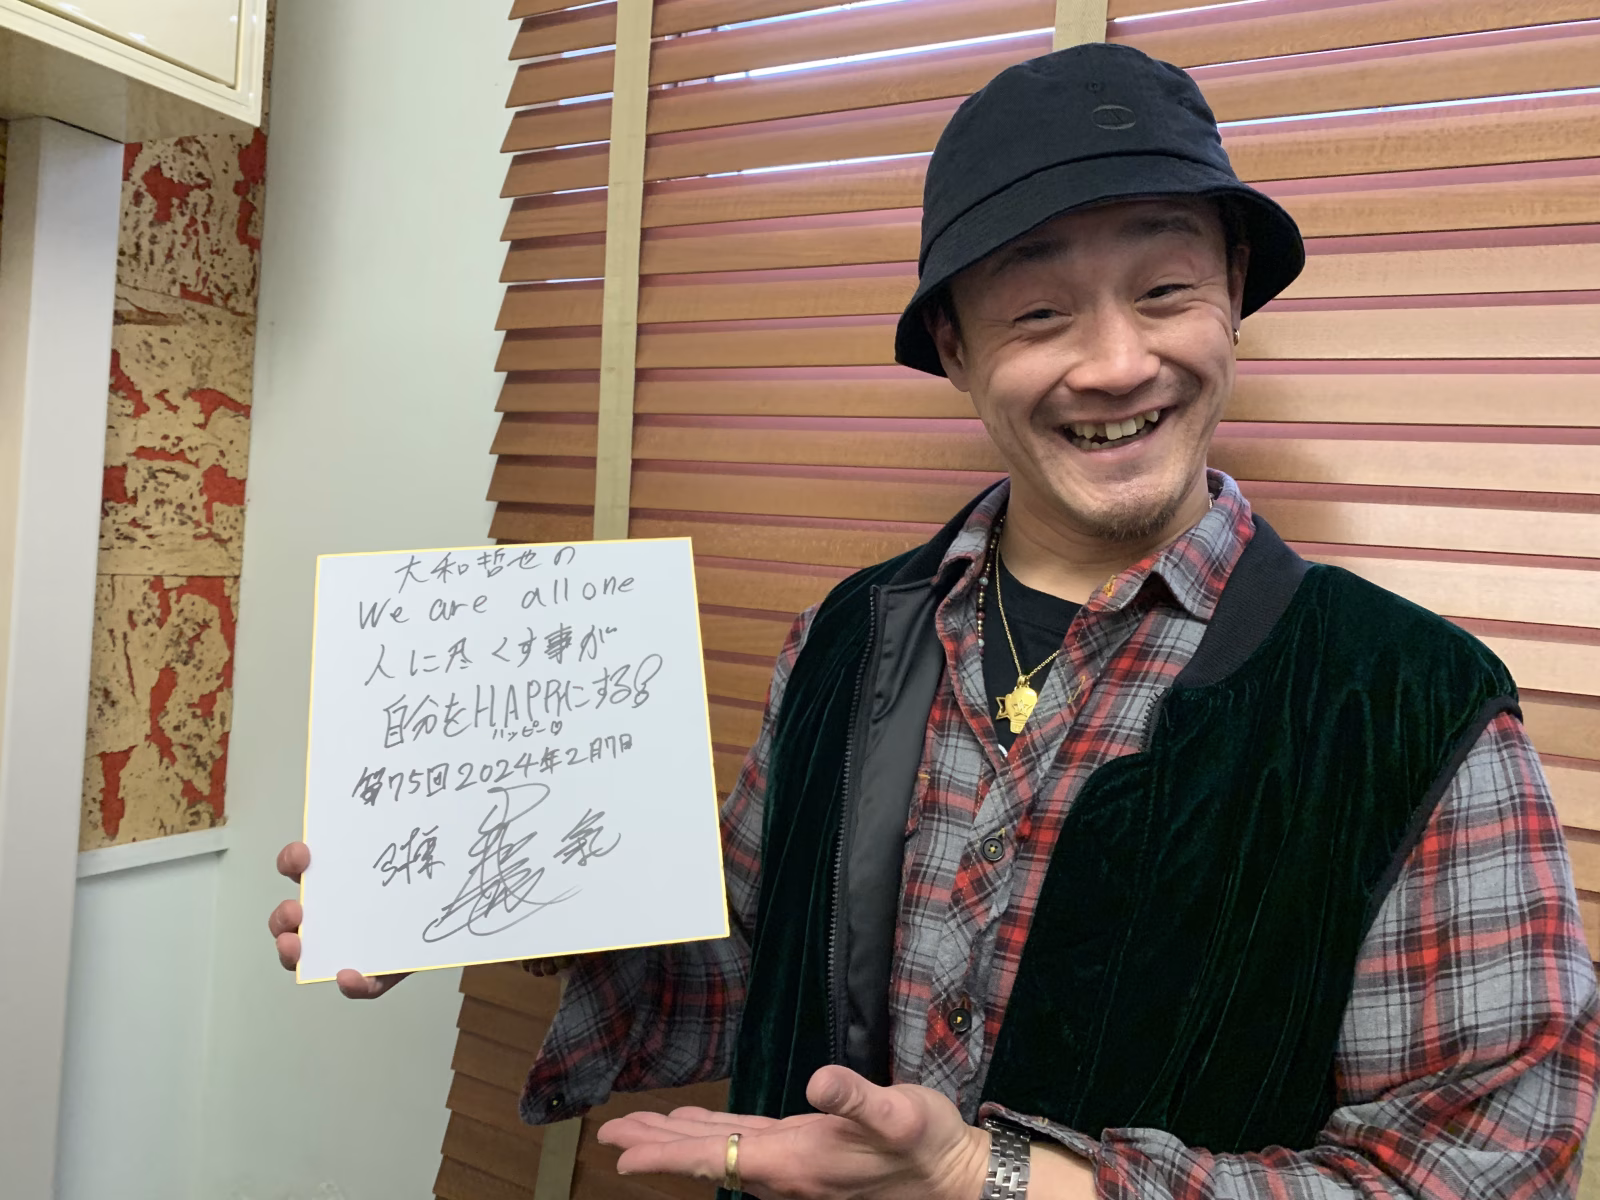 大和哲也の
We are all one
人に尽くす事が
自分をHAPPYにする
ハッピー♡
第75回2024年2月7日